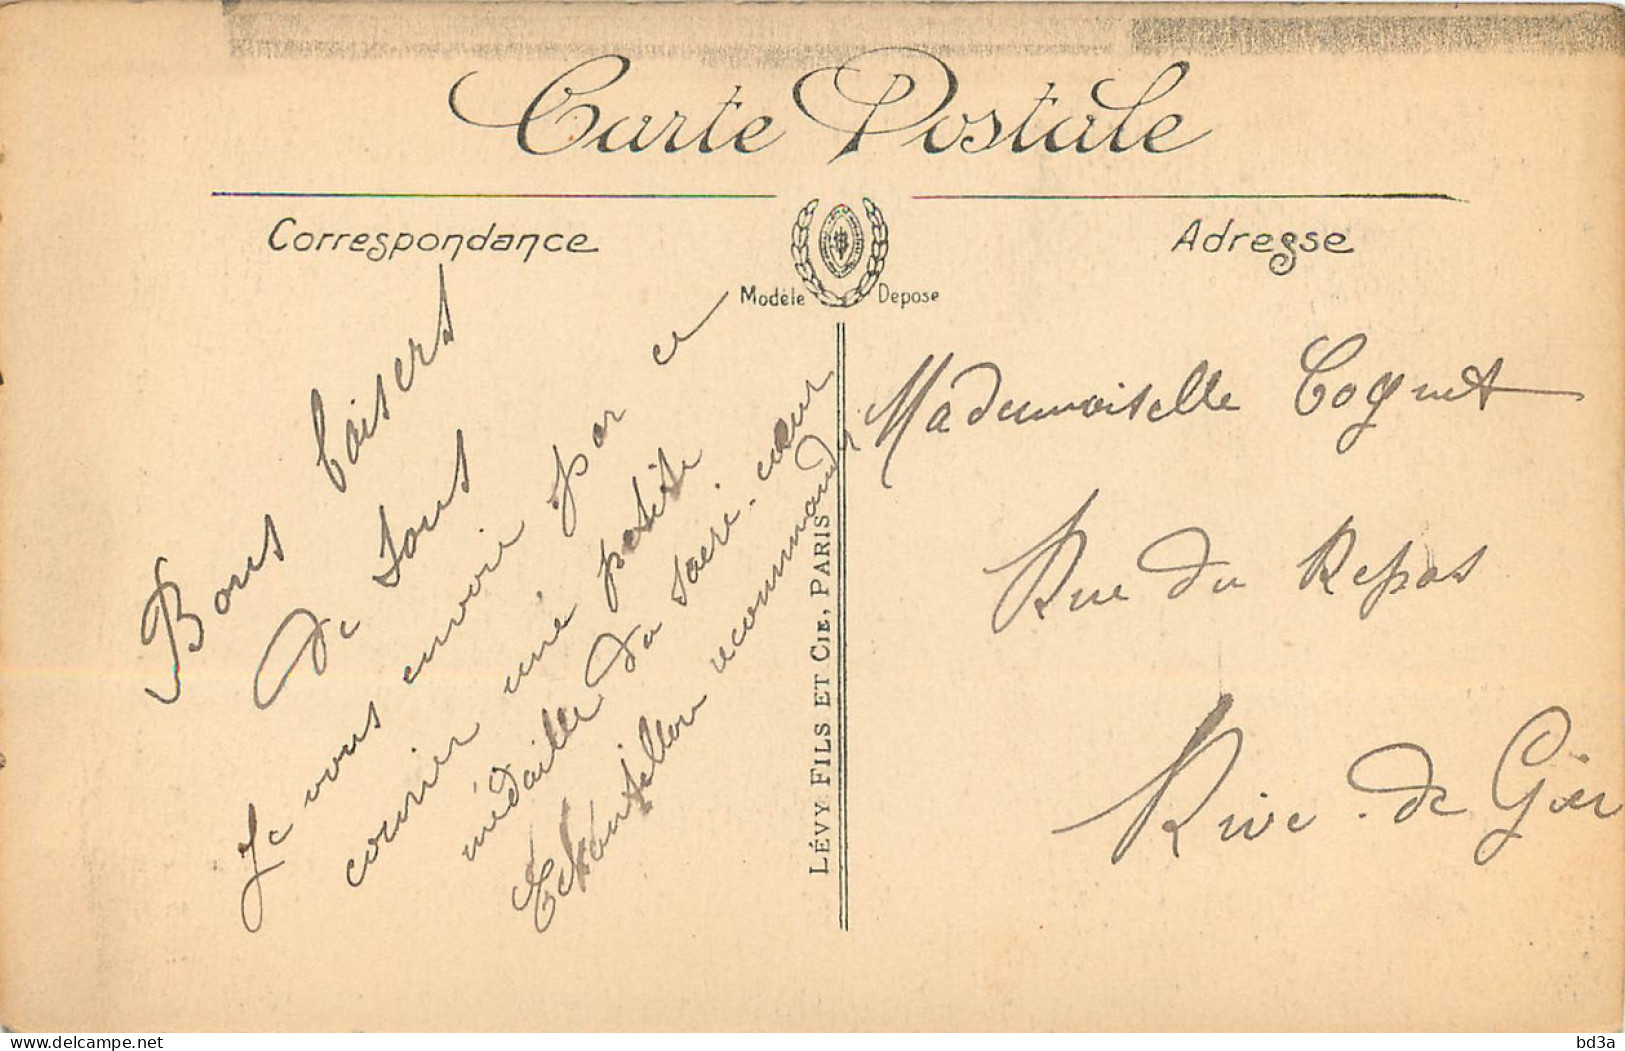 Carte Postale
Correspondance
Adresse
Modèle Déposé
Bons baisers
de tous
Je vous envoie par ce
courrier une petite
médaille du sacré-cœur
Echantillon recommandé
LÉVY FILS ET CIE, PARIS
Mademoiselle Coquet
Rue du Repos
Rive-de Gier
delcampe.net
bd3a